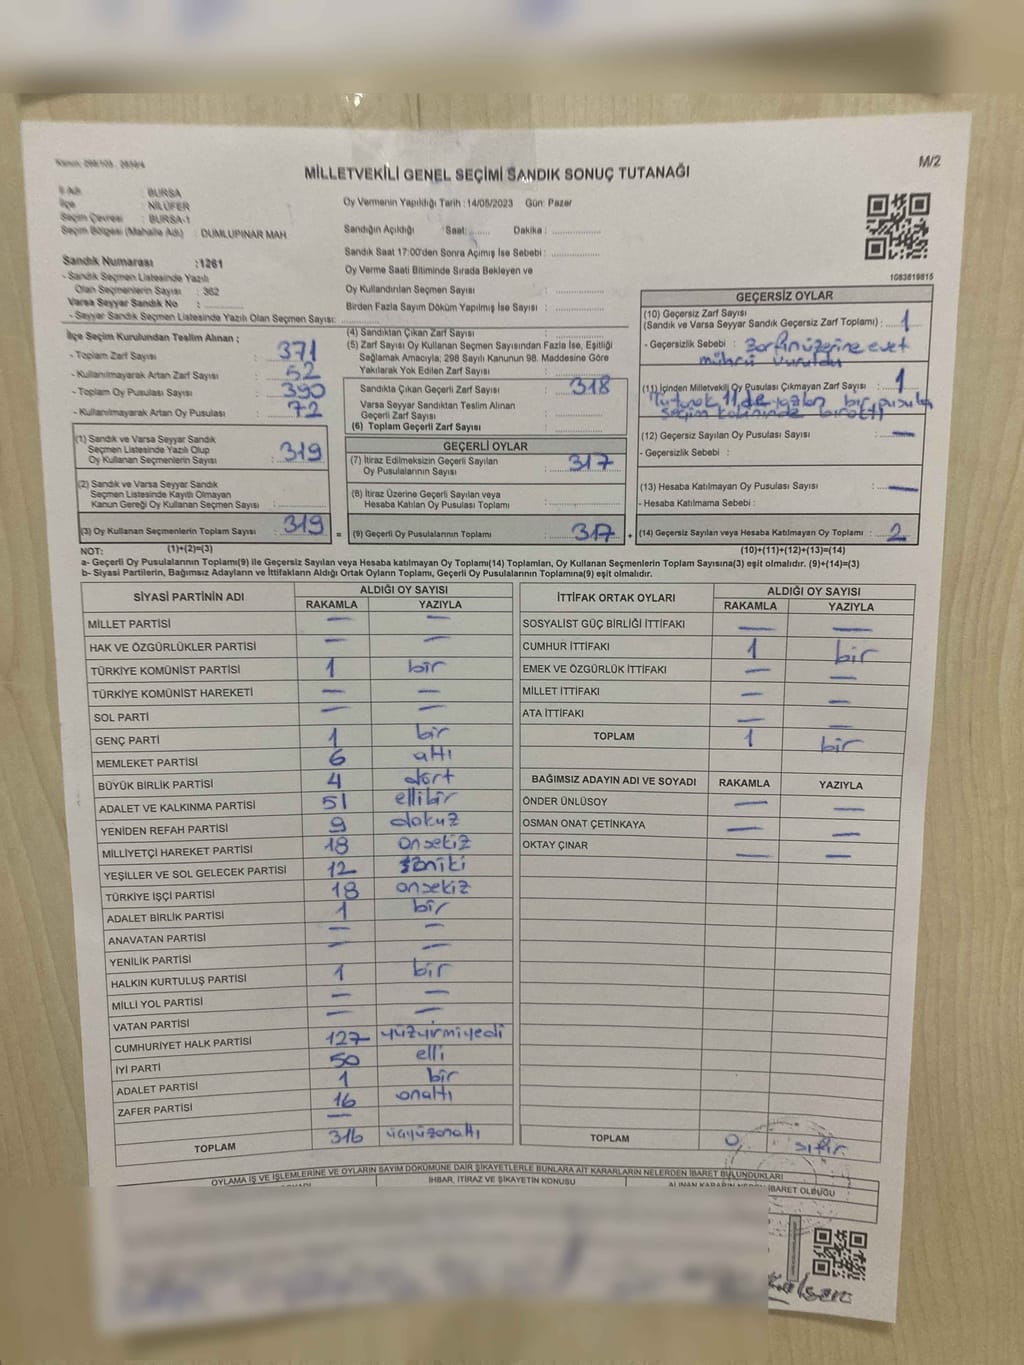 Kanun: 298/105 , 2839/4
M/2
MİLLETVEKİLİ GENEL SEÇİMİ SANDIK SONUÇ TUTANAĞI
İl Adı : BURSA
İlçe : NİLÜFER
Seçim Çevresi : BURSA-1
Seçim Bölgesi (Mahalle Adı) : DUMLUPINAR MAH
Oy Vermenin Yapıldığı Tarih : 14/05/2023 Gün: Pazar
Sandığın Açıldığı Saat: ........ Dakika : ................
Sandık Saat 17:00'den Sonra Açımış İse Sebebi : ................
Oy Verme Saati Bitiminde Sırada Bekleyen ve
Oy Kullandırılan Seçmen Sayısı : ................
Birden Fazla Sayım Döküm Yapılmış İse Sayısı : ................
1083819815
Sandık Numarası :1261
- Sandık Seçmen Listesinde Yazılı
Olan Seçmenlerin Sayısı : 362
Varsa Seyyar Sandık No : ................
- Seyyar Sandık Seçmen Listesinde Yazılı Olan Seçmen Sayısı: ................
İlçe Seçim Kurulundan Teslim Alınan ;
- Toplam Zarf Sayısı : 371
- Kullanılmayarak Artan Zarf Sayısı : 52
- Toplam Oy Pusulası Sayısı : 390
- Kullanılmayarak Artan Oy Pusulası : 72
(1) Sandık ve Varsa Seyyar Sandık
Seçmen Listesinde Yazılı Olup
Oy Kullanan Seçmenlerin Sayısı : 319
(2) Sandık ve Varsa Seyyar Sandık
Seçmen Listesinde Kayıtlı Olmayan
Kanun Gereği Oy Kullanan Seçmen Sayısı : ................
(3) Oy Kullanan Seçmenlerin Toplam Sayısı : 319 =
(4) Sandıktan Çıkan Zarf Sayısı : ................
(5) Zarf Sayısı Oy Kullanan Seçmen Sayısından Fazla İse, Eşitliği
Sağlamak Amacıyla; 298 Sayılı Kanunun 98. Maddesine Göre
Yakılarak Yok Edilen Zarf Sayısı : ................
Sandıkta Çıkan Geçerli Zarf Sayısı : 318
Varsa Seyyar Sandıktan Teslim Alınan
Geçerli Zarf Sayısı : ................
(6) Toplam Geçerli Zarf Sayısı : ................
GEÇERLİ OYLAR
(7) İtiraz Edilmeksizin Geçerli Sayılan
Oy Pusulalarının Sayısı : 317
(8) İtiraz Üzerine Geçerli Sayılan veya
Hesaba Katılan Oy Pusulası Toplamı : ................
(9) Geçerli Oy Pusulalarının Toplamı : 317 +
GEÇERSİZ OYLAR
(10) Geçersiz Zarf Sayısı
(Sandık ve Varsa Seyyar Sandık Geçersiz Zarf Toplamı) : 1
- Geçersizlik Sebebi : zarfın üzerine evet
mührü vuruldu
(11) İçinden Milletvekili Oy Pusulası Çıkmayan Zarf Sayısı : 1
Tutanak 11.de yazılan bir pusula
seçim kabininde bıraktı
(12) Geçersiz Sayılan Oy Pusulası Sayısı : —
- Geçersizlik Sebebi :
(13) Hesaba Katılmayan Oy Pusulası Sayısı : —
- Hesaba Katılmama Sebebi :
(14) Geçersiz Sayılan veya Hesaba Katılmayan Oy Toplamı : 2
NOT: (1)+(2)=(3) (10)+(11)+(12)+(13)=(14)
a- Geçerli Oy Pusulasının Toplamı(9) ile Geçersiz Sayılan veya Hesaba katılmayan Oy Toplamı(14) Toplamları, Oy Kullanan Seçmenlerin Toplam Sayısına(3) eşit olmalıdır. (9)+(14)=(3)
b- Siyasi Partilerin, Bağımsız Adayların ve İttifakların Aldığı Ortak Oyların Toplamı, Geçerli Oy Pusulalarının Toplamına(9) eşit olmalıdır.
SİYASİ PARTİNİN ADI ALDIĞI OY SAYISI
RAKAMLA YAZIYLA
MİLLET PARTİSİ — —
HAK VE ÖZGÜRLÜKLER PARTİSİ — —
TÜRKİYE KOMÜNİST PARTİSİ 1 bir
TÜRKİYE KOMÜNİST HAREKETİ — —
SOL PARTİ — —
GENÇ PARTİ 1 bir
MEMLEKET PARTİSİ 6 altı
BÜYÜK BİRLİK PARTİSİ 4 dört
ADALET VE KALKINMA PARTİSİ 51 ellibir
YENİDEN REFAH PARTİSİ 9 dokuz
MİLLİYETÇİ HAREKET PARTİSİ 18 onsekiz
YEŞİLLER VE SOL GELECEK PARTİSİ 12 oniki
TÜRKİYE İŞÇİ PARTİSİ 18 onsekiz
ADALET BİRLİK PARTİSİ 1 bir
ANAVATAN PARTİSİ — —
YENİLİK PARTİSİ — —
HALKIN KURTULUŞ PARTİSİ 1 bir
MİLLİ YOL PARTİSİ — —
VATAN PARTİSİ — —
CUMHURİYET HALK PARTİSİ 127 yüzyirmiyedi
İYİ PARTİ 50 elli
ADALET PARTİSİ 1 bir
ZAFER PARTİSİ 16 onaltı
—
TOPLAM 316 üçyüzonaltı
İTTİFAK ORTAK OYLARI ALDIĞI OY SAYISI
RAKAMLA YAZIYLA
SOSYALİST GÜÇ BİRLİĞİ İTTİFAKI — —
CUMHUR İTTİFAKI 1 bir
EMEK VE ÖZGÜRLÜK İTTİFAKI — —
MİLLET İTTİFAKI — —
ATA İTTİFAKI — —
TOPLAM 1 bir
BAĞIMSIZ ADAYIN ADI VE SOYADI RAKAMLA YAZIYLA
ÖNDER ÜNLÜSOY — —
OSMAN ONAT ÇETİNKAYA — —
OKTAY ÇINAR — —
TOPLAM 0 sıfır
OYLAMA İŞ VE İŞLEMLERİNE VE OYLARIN SAYIM DÖKÜMÜNE DAİR ŞİKAYETLERLE BUNLARA AİT KARARLARIN NELERDEN İBARET BULUNDUKLARI
İHBAR, İTİRAZ VE ŞİKAYETİN KONUSU
İBARET OLDUĞU